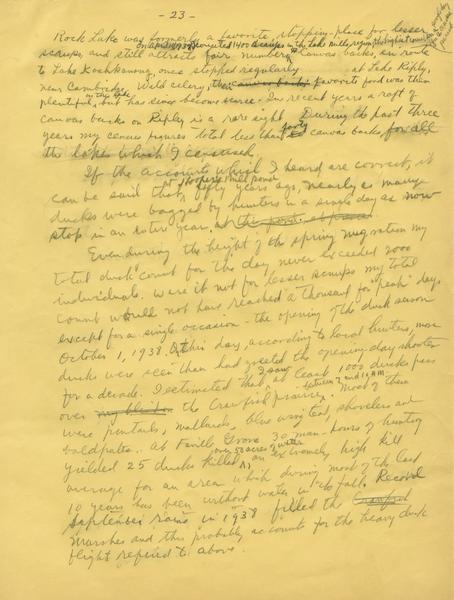 - 23 -
Rock Lake was formerly a favorite stopping-place for lesser
on April 1938 I counted 1400 scaups in the Lake Mills region
scaups and still attracts fair numbers. Canvas backs, en route
to Lake Koshkonong, once stopped regularly at Lake Ripley,
near Cambridge. Wild celery, their favorite food was then
plentiful in this lake, but has since become scarce. In recent years a raft of
canvas backs on Ripley is a rare sight. During the past three
years my census figures total less than forty canvas backs for all
the lakes which I censused.
If the accounts which I heard are correct, it
can be said that, at Hoopers mill pond fifty years ago, nearly as many
ducks were bagged by hunters in a single day as now
stop in an entire year,
Even during the height of the spring migration my
total duck count for the day never exceeded 2000
individuals. Were it not for lesser scaups my total
count would not have reached a thousand for "peak" days
except for a single occasion - the opening of the duck season
October 1, 1938. On this day, according to local hunters, more
ducks were seen than had greeted the opening-day shooter
for a decade. I estimated that I saw at least 1000 ducks pass
over the Crawfish prairie between 7 and 10 A.M. Most of them
were pintails, mallards, blue wing teal, shovelers and
baldpates. At Faville Grove 30 man-hours of hunting
over 50 acres of water
yielded 25 ducks killed, an extremely high kill
average for an area which during most of the last
10 years has been without water in the fall. Record
September rains in 1938 filled the Crawfish
marshes and this probably accounts for the heavy duck
flight referred to above.